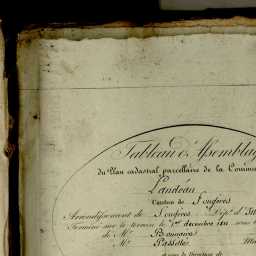 Tableau d'Assemblag
du Plan cadastral parcellaire de la Commu
Landéan
Canton de Fougères
Arrondissement de Fougères Dépt. d'Ill
Terminé sur le terrain le 1er décembre 1811, sous
de Mr.
Mr.
sous la direction de